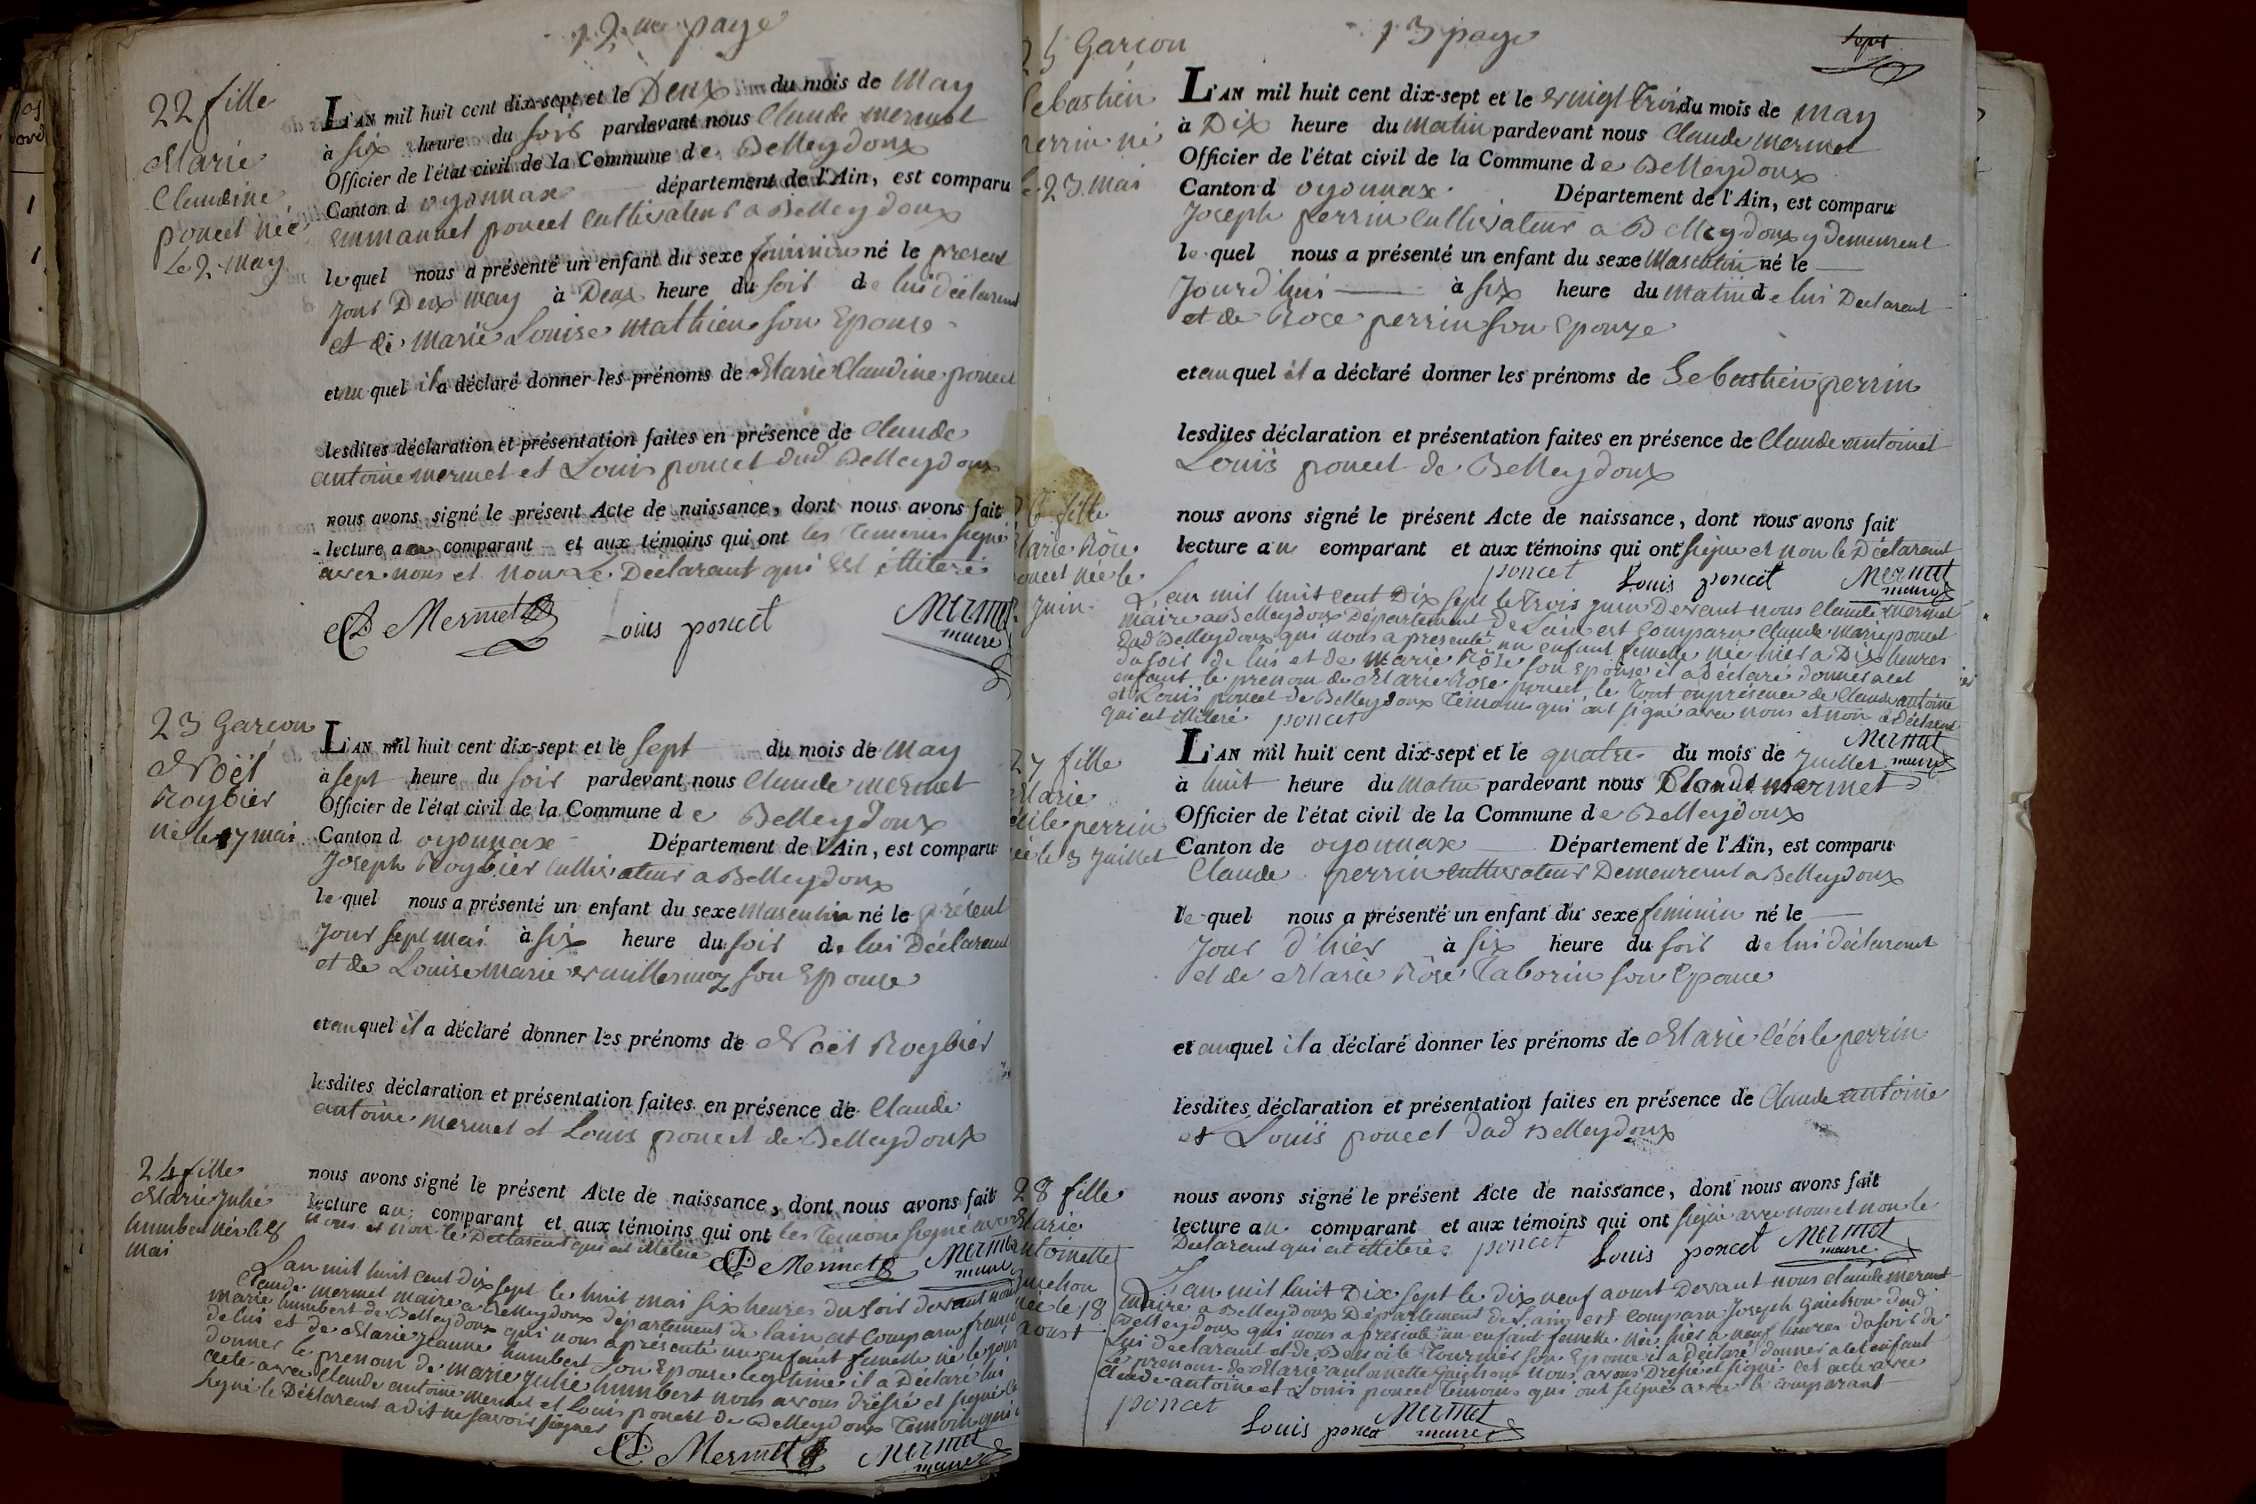 12me page
22 fille
Marie
Claudine
poncet née
le 2 may
L'AN mil huit cent dix-sept et le Deux du mois de May
à six heure du soir pardevant nous Claude mermet
Officier de l'état civil de la Commune de Belleydoux
Canton d oyonnax département de l'Ain, est comparu
Emmanuel poncet Cultivateur a Belleydoux
lequel nous a présenté un enfant du sexe feminin né le present
Jour Deux may à Deux heure du soir de lui déclarant
et de Marie Louise Mathieu son Epouse
et au quel il a déclaré donner les prénoms de Marie Claudine poncet
lesdites déclaration et présentation faites en présence de Claude
antoine mermet et Louis poncet dud Belleydoux
nous avons signé le présent Acte de naissance, dont nous avons fait
lecture au comparant et aux témoins qui ont les temoins signé
avec nous et non le Declarant qui est illiteré
Mermet Louis poncet Mermet
maire
23 Garcon
Noël
Roybier
né le 7 mai
L'AN mil huit cent dix-sept et le sept du mois de May
à sept heure du soir pardevant nous Claude mermet
Officier de l'état civil de la Commune de Belleydoux
Canton d oyonnax Département de l'Ain, est comparu
Joseph Roybier Cultivateur a Belleydoux
lequel nous a présenté un enfant du sexe Masculin né le présent
Jour sept mai à six heure du soir de lui Déclarant
et de Louise Marie vuillermoz son Epouse
et au quel il a déclaré donner les prénoms de Noël Roybier
lesdites déclaration et présentation faites en présence de Claude
antoine mermet et Louis poncet de Belleydoux
nous avons signé le présent Acte de naissance, dont nous avons fait
lecture au comparant et aux témoins qui ont les Temoins signé avec
nous et non le Declarant qui est illiteré
Mermet Mermet
maire
24 fille
Marie Julie
humbert née le 8
mai
L'an mil huit cent dix sept le huit mai six heures du soir devant nous
Claude mermet maire a Belleydoux département de lain est comparu
marie humbert de Belleydoux qui nous a présenté un enfant femelle né le jour
de lui et de Marie Jeanne humbert son Epouse legitime il a Déclaré lui
donner le prenom de marie Julie humbert nous avons dressé et signé le
acte avec Claude antoine mermet et Louis poncet de Belleydoux Temoin qui
signé le Déclarant a dit ne savoir signer
Mermet Mermet
maire
13 page
sept
25 Garcon
Sebastien
perrin né
le 23 mai
L'AN mil huit cent dix-sept et le vingt Trois du mois de may
à Dix heure du Matin pardevant nous Claude mermet
Officier de l'état civil de la Commune de Belleydoux
Canton d oyonnax Département de l'Ain, est comparu
Joseph perrin Cultivateur a Belleydoux y demeurent
lequel nous a présenté un enfant du sexe Masculin né le
Jourd'hui à six heure du matin de lui Declarant
et de Rose perrin son Epouze
et au quel il a déclaré donner les prénoms de Sebastien perrin
lesdites déclaration et présentation faites en présence de Claude antoine et
Louis poncet de Belleydoux
nous avons signé le présent Acte de naissance, dont nous avons fait
lecture au comparant et aux témoins qui ont signe et non le Déclarant
poncet Louis poncet Mermet
maire
26 fille
Marie Rôse
poncet née le
2 Juin
L'an mil huit cent Dix sept le Trois juin Devant nous Claude mermet
maire a Belleydoux Département de Lain est Comparu Claude Marie poncet
dud Belleydoux qui nous a presenté un enfant femelle née hier a Dix heures
du soir de lui et de Marie Rose son Epouse il a Déclaré donner a cet
enfant le prenom de Marie Rose poncet, le tout en présence de Claude antoine
et Louis poncet de Belleydoux Témoins qui ont signé avec nous et non le déclarant
qui est illiteré poncet Mermet
maire
27 fille
Marie
Cécile perrin
née le 3 juillet
L'AN mil huit cent dix-sept et le quatre du mois de Juillet
à huit heure du Matin pardevant nous Claude mermet
Officier de l'état civil de la Commune de Belleydoux
Canton de oyonnax Département de l'Ain, est comparu
Claude perrin Cultivateur Demeurent a Belleydoux
lequel nous a présenté un enfant du sexe feminin né le
Jour d'hier à six heure du soir de lui déclarant
et de Marie Rôse Taborin son Epouse
et auquel il a déclaré donner les prénoms de Marie Cécile perrin
lesdites déclaration et présentation faites en présence de Claude antoine
et Louis poncet dud Belleydoux
nous avons signé le présent Acte de naissance, dont nous avons fait
lecture au comparant et aux témoins qui ont signé avec nous et non le
Declarant qui est illiteré poncet Louis poncet Mermet
maire
28 fille
Marie
antoinette
guichon
née le 18
aoust
L'an mil huit Dix sept le dix neuf aoust Devant nous claude mermet
Maire a Belleydoux Département de Lain est comparu Joseph guichon dud
Belleydoux qui nous a presenté un enfant femelle née hier a neuf heures du soir de
Lui declarant et de Benoite Tournier son Epouse il a Déclaré donner a cet enfant
le prenom de Marie antoinette guichon nous avons Dressé et signé cet acte avec
Claude antoine et Louis poncet Témoins qui ont signé avec le comparant
poncet Louis poncet Mermet
maire